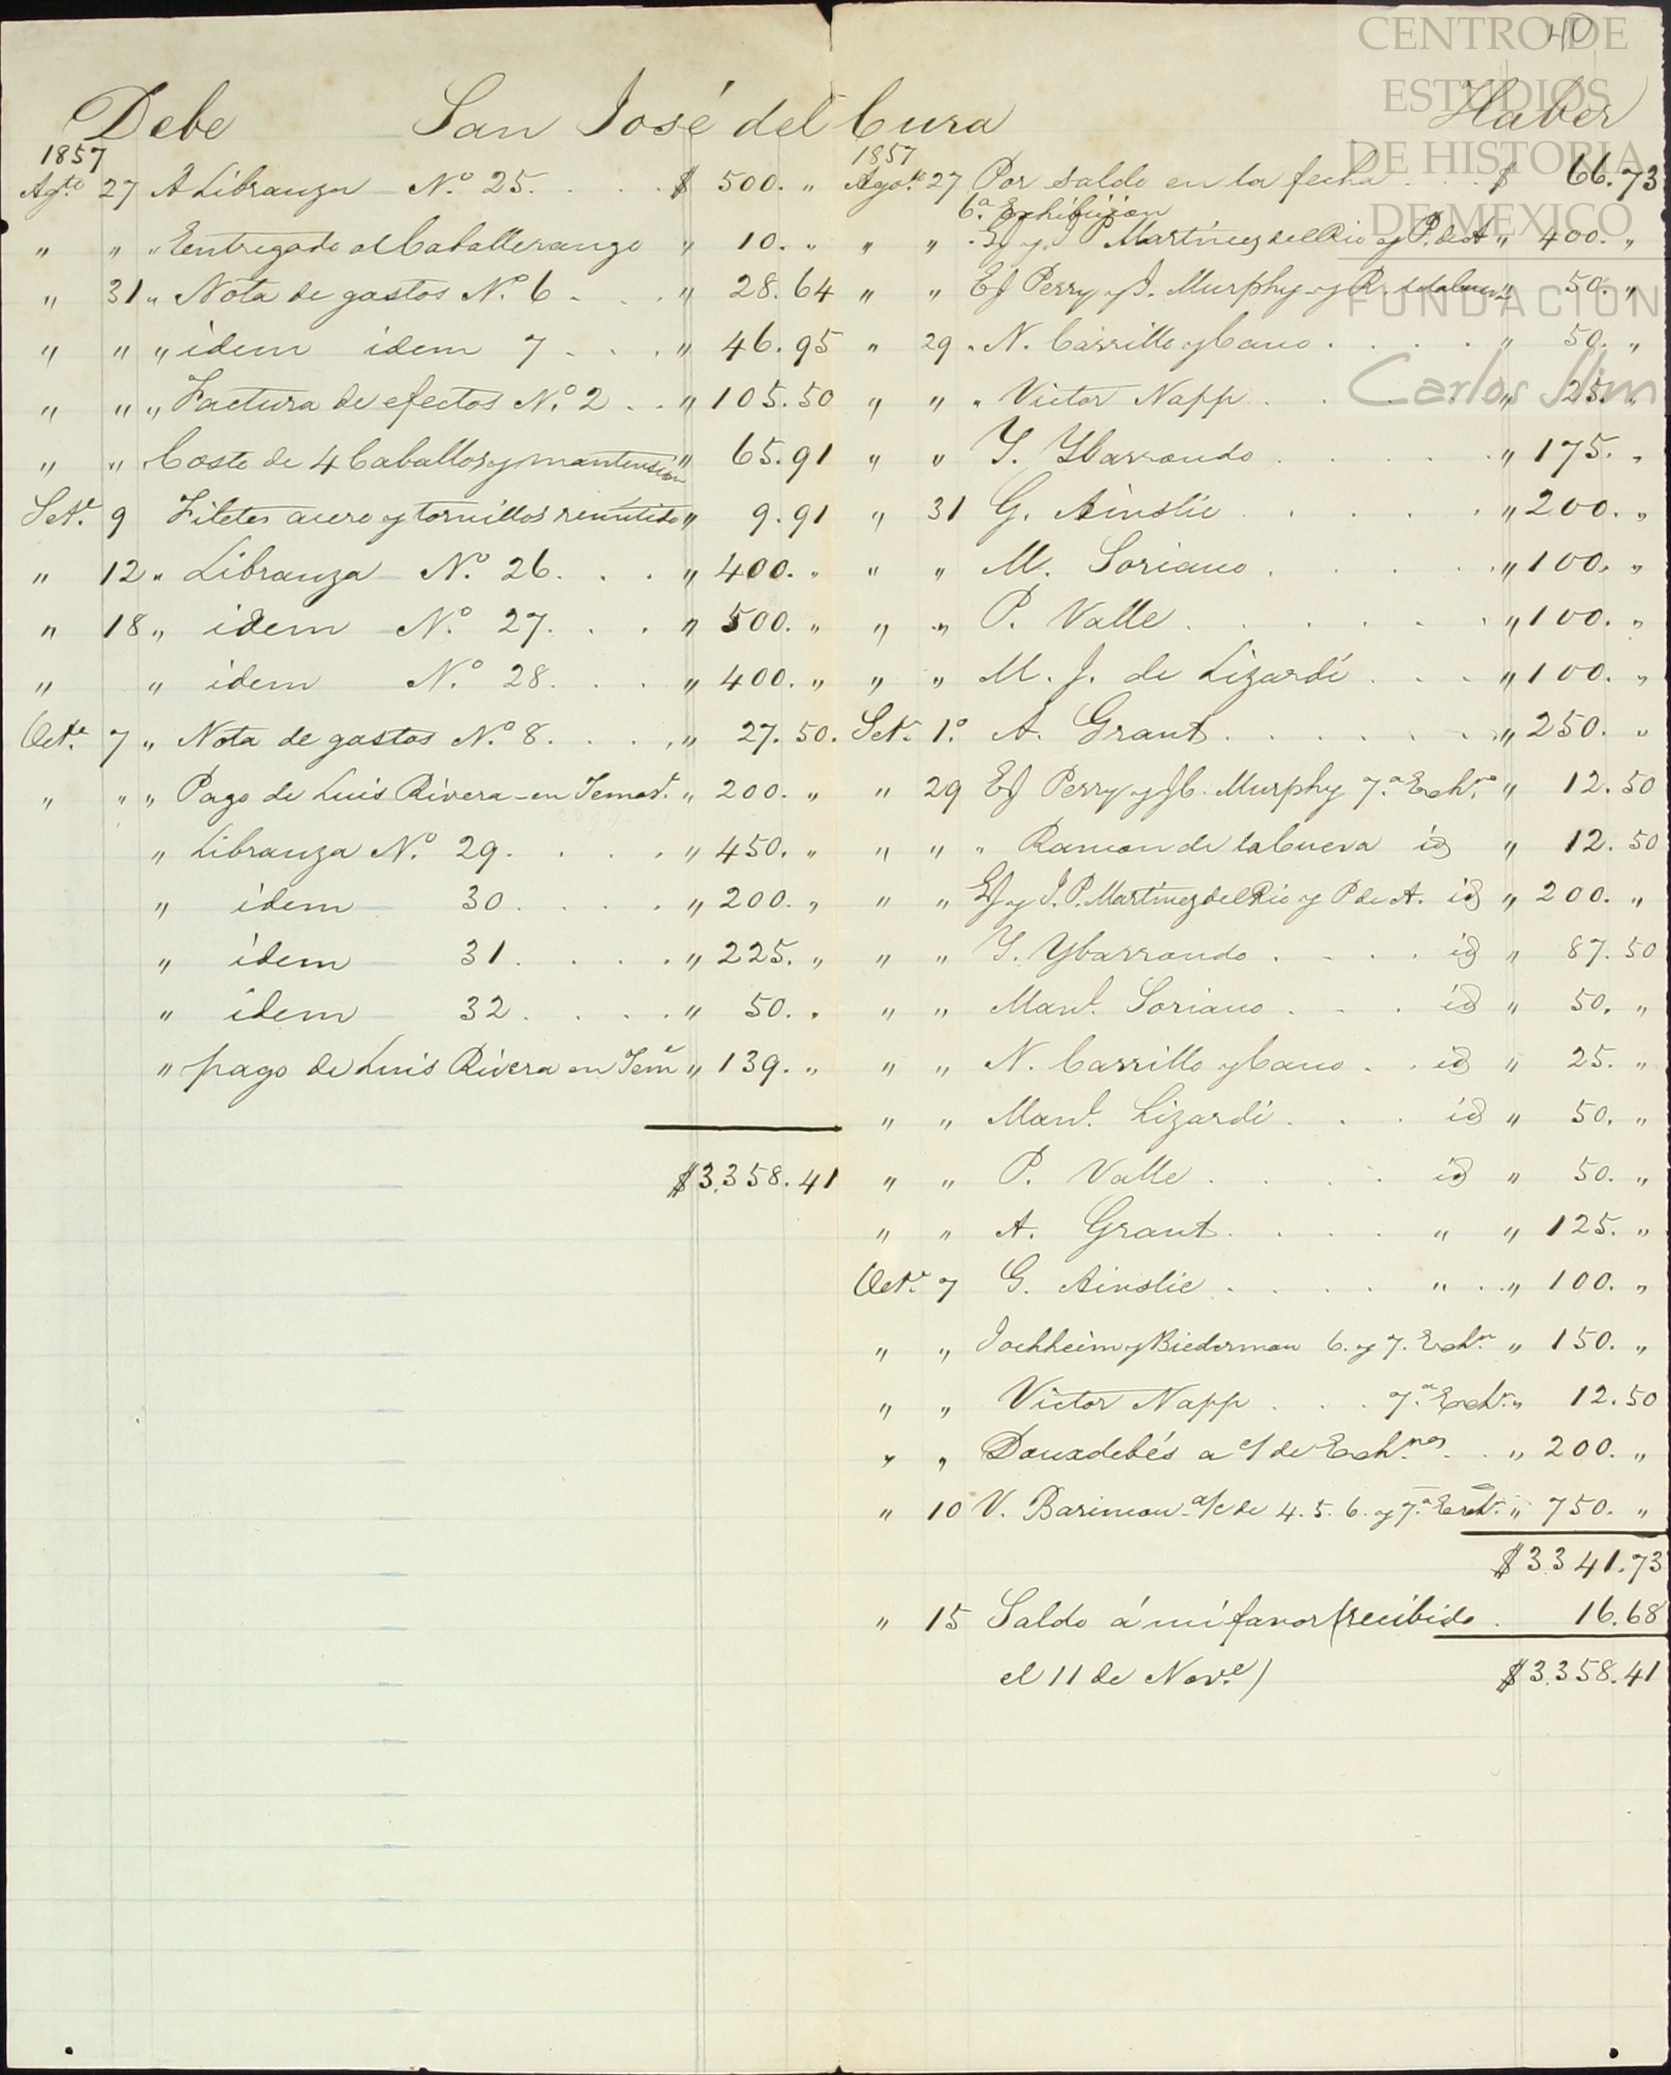 40
CENTRO DE
ESTUDIOS
DE HISTORIA
DE MEXICO
FUNDACION
Carlos Slim
Debe San José del Cura Haber
1857
Agte 27 A Libranza N.º 25 . . . . $ 500. "
" " " Entregado al Caballerango " 10. "
" 31 " Nota de gastos N.º 6 . . . " 28.64
" " " idem idem 7 . . . " 46.95
" " " Factura de efectos N.º 2 . . " 105.50
" " " Costo de 4 Caballos y mantension " 65.91
Set.e 9 Filetes acero y tornillos remitido " 9.91
" 12 " Libranza N.º 26 . . . " 400. "
" 18 " idem N.º 27 . . . " 500. "
" " idem N.º 28 . . . " 400. "
Oct.e 7 " Nota de gastos N.º 8 . . . . " 27.50.
" " " Pago de Luis Rivera en Temast. " 200. "
" Libranza N.º 29 . . . . " 450. "
" idem 30 . . . . " 200. "
" idem 31 . . . . " 225. "
" idem 32 . . . . " 50. "
" pago de Luis Rivera en Teme " 139. "
$3.358.41
1857
Agote 27 Por saldo en la fecha . . . $ 66.73
6.a Exhibicion
" " . EJ y J P Martinez del Rio y P. de A " 400. "
" " EJ Perry y J. Murphy y R. de la Cueva " 50. "
" 29 . N. Carrillo y Cano . . . . " 50. "
" " " Victor Napp . . . . " 25. "
" " Y. Ybarrondo . . . . . " 175. "
" 31 G. Ainslie . . . . . " 200. "
" " M. Soriano . . . . . " 100. "
" " P. Valle . . . . . . " 100. "
" " M. J. de Lizardi . . . " 100. "
Set.e 1.º A. Grant . . . . . . " 250. "
" 29 EJ Perry y J C. Murphy 7.a Exh.on " 12.50
" " " Ramon de la Cueva id " 12.50
" " EJ y J. P. Martinez del Rio y P de A. id " 200. "
" " Y. Ybarrondo . . . . id " 87.50
" " Manl. Soriano . . . id " 50. "
" " N. Carrillo y Cano . . id " 25. "
" " Manl. Lizardi . . . id " 50. "
" " P. Valle . . . . id " 50. "
" " A. Grant . . . . " " 125. "
Oct.e 7 G. Ainslie . . . . " . " 100. "
" " Jochheim y Biederman 6. y 7. Exh.n " 150. "
" " Victor Napp . . . 7.a Exh.n " 12.50
" " Douxdebés a c/ de Exh.nes . . " 200. "
" 10 V. Barimon a/c de 4. 5. 6. y 7.a Exh.n " 750. "
$3.341.73
" 15 Saldo á mi favor (recibido . 16.68
el 11 de Nov.e) $3.358.41